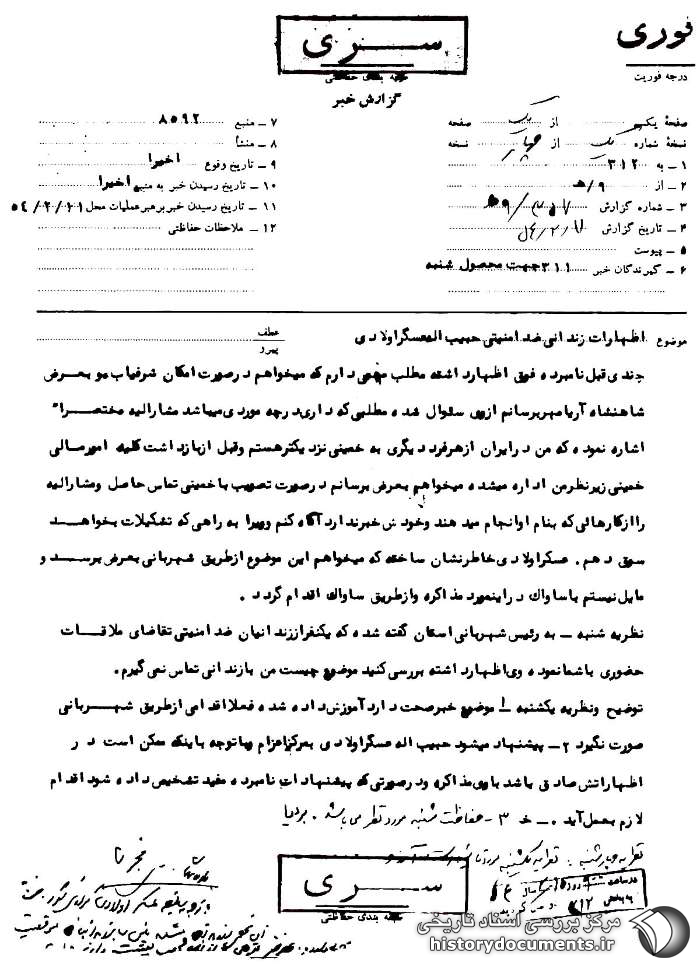 فوری
درجه فوریت
سری
طبقه بندی حفاظتی
گزارش خبر
صفحهٔ یک از یک صفحه
نسخهٔ شماره یک از چهار نسخه
۱ ـ به ۳۱۲
۲ ـ از ۹/هـ
۳ ـ شماره گزارش
۴ ـ تاریخ گزارش
۵ ـ پیوست
۶ ـ گیرندگان خبر ۳۱۱ جهت محصول شنبه
۷ ـ منبع ۸۵۹۲
۸ ـ منشأ
۹ ـ تاریخ وقوع اخیرا
۱۰ ـ تاریخ رسیدن خبر به منبع اخیرا
۱۱ ـ تاریخ رسیدن خبر برهبر عملیات محل ۵۴/۲/۲۱
۱۲ ـ ملاحظات حفاظتی
موضوع اظهارات زندانی ضد امنیتی حبیب اله عسگراولادی
عطف
پیرو
چندی قبل نامبرده فوق اظهار داشته مطلب مهمی دارم که میخواهم در صورت امکان شرفیاب و بعرض
شاهنشاه آریامهر برسانم ازوی سئوال شده مطلبی که داری در چه موردی میباشد مشارالیه مختصراً
اشاره نموده که من در ایران از هر فرد دیگری به خمینی نزدیکتر هستم و قبل از بازداشت کلیه امور مالی
خمینی زیر نظر من اداره میشده میخواهم بعرض برسانم در صورت تصویب با خمینی تماس حاصل و مشارالیه
را از کارهائی که بنام او انجام میدهند و خودش خبر ندارد آگاه کنم و ویرا به راهی که تشکیلات بخواهد
سوق دهم. عسگراولادی خاطرنشان ساخته که میخواهم این موضوع از طریق شهربانی بعرض برسد و
مایل نیستم با ساواک در اینمورد مذاکره و از طریق ساواک اقدام گردد.
نظریه شنبه ـ به رئیس شهربانی استان گفته شده که یکنفر از زندانیان ضد امنیتی تقاضای ملاقات
حضوری با شما نموده وی اظهار داشته بررسی کنید موضوع چیست من با زندانی تماس نمی گیرم.
توضیح و نظریه یکشنبه ۱ـ موضوع خبر صحت دارد آموزش داده شده فعلا اقدامی از طریق شهربانی
صورت نگیرد ۲ـ پیشنهاد میشود حبیب اله عسگراولادی بمرکز اعزام و با توجه باینکه ممکن است در
اظهاراتش صادق باشد با وی مذاکره و در صورتی که پیشنهادات نامبرده مفید تشخیص داده شود اقدام
لازم بعمل آید. خ ۳ـ حفاظت شنبه مورد نظر می باشد. بردیا
نظریه چهارشنبه: نظریه یکشنبه مورد تأیید است
سری
طبقه بندی حفاظتی
مرکز بررسی اسناد تاریخی
historydocuments.ir